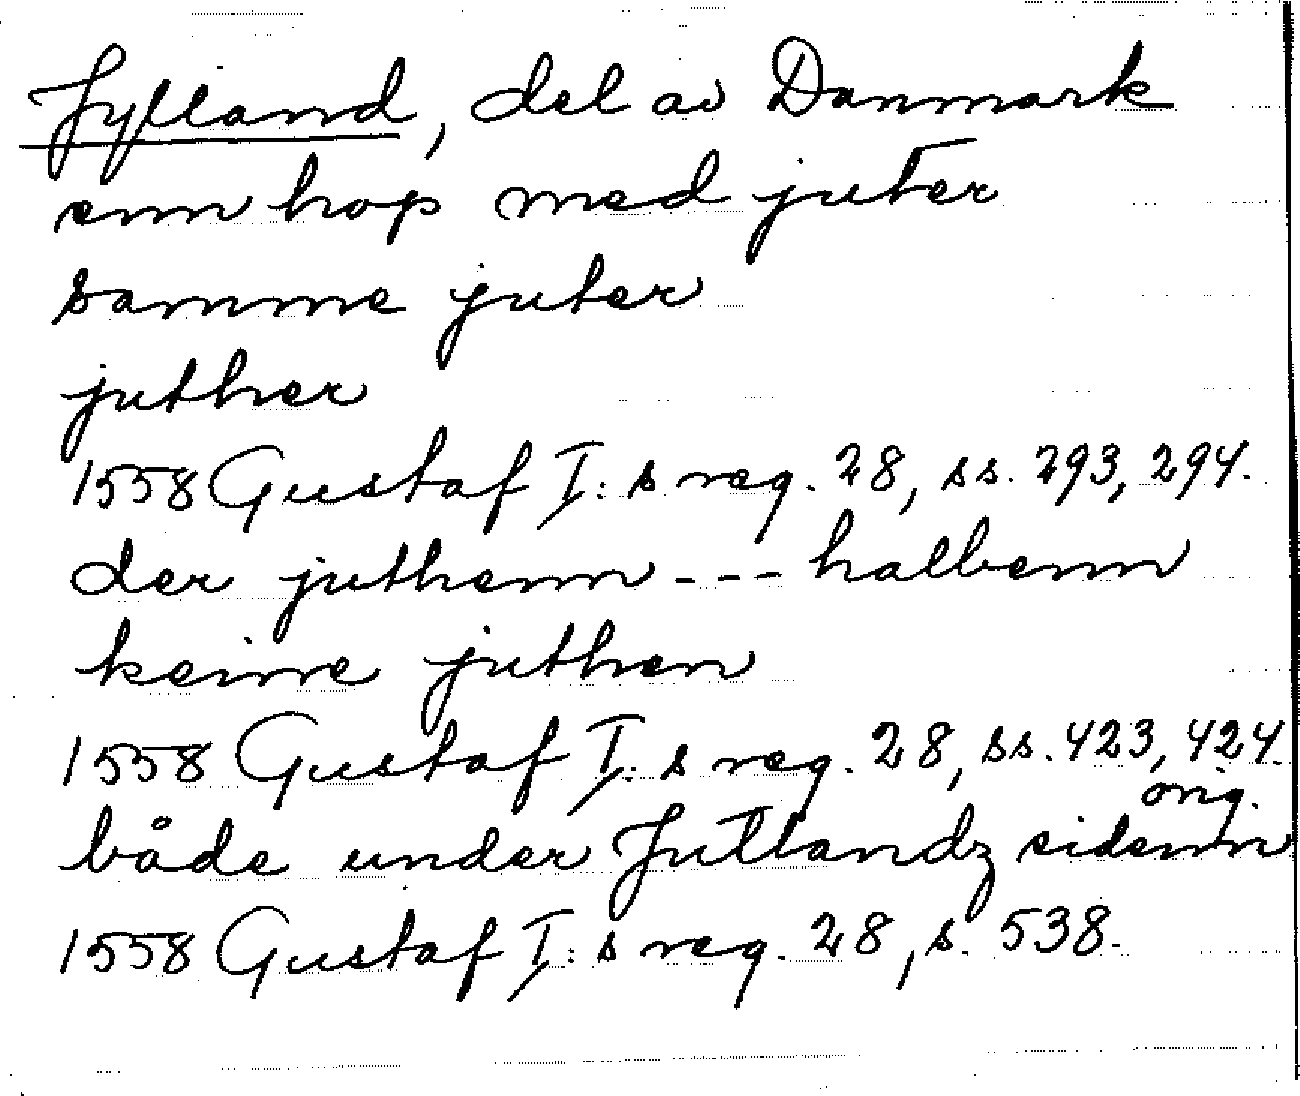 Jylland, del av Danmark
enn hop med juter
samme juter
juther
1558 Gustaf I:s reg. 28, ss. 293, 294.
der juthenn --- halbenn
keine juthen
1558 Gustaf I:s reg. 28, ss. 423, 424
orig.
både under Jutlandz sidenn
1558 Gustaf I:s reg. 28, s. 538.